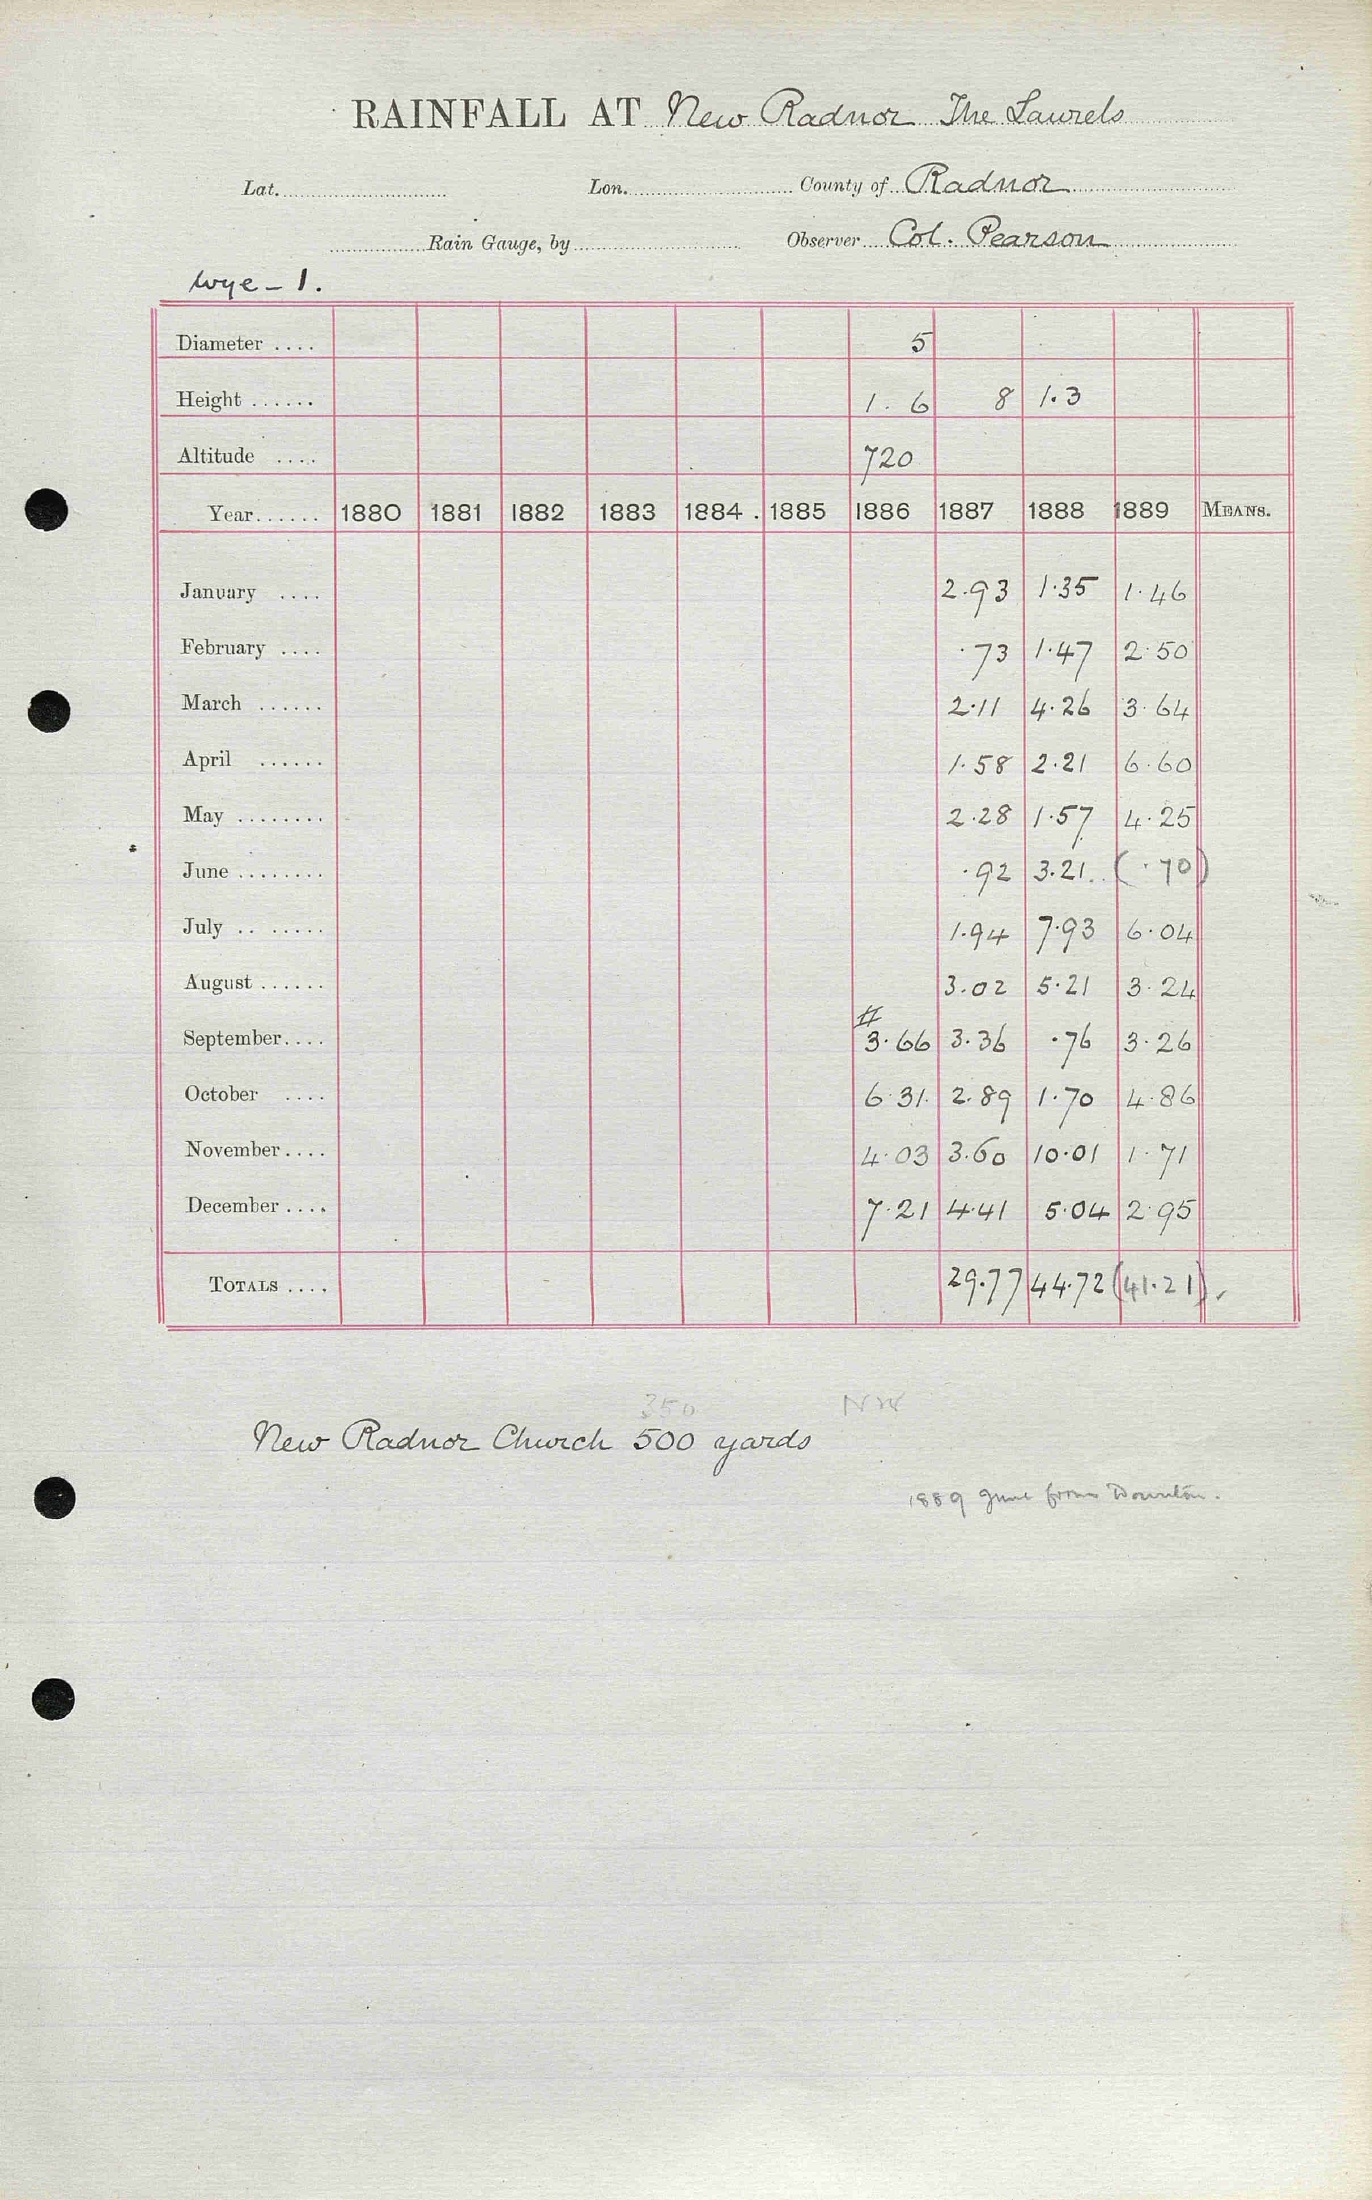 RAINFALL AT New Radnor The Laurels
Lat. Lon. County of Radnor
Rain Gauge, by Observer Col. Pearson
Wye - 1.
Diameter .... 5
Height ...... 1. 6 8 1.3
Altitude .... 720
Year...... 1880 1881 1882 1883 1884 . 1885 1886 1887 1888 1889 MEANS.
January .... 2.93 1.35 1.46
February .... .73 1.47 2.50
March ...... 2.11 4.26 3.64
April ...... 1.58 2.21 6.60
May ........ 2.28 1.57 4.25
June ........ .92 3.21 (.70)
July .. ..... 1.94 7.93 6.04
August ...... 3.02 5.21 3.24
#
September.... 3.66 3.36 .76 3.26
October .... 6.31 2.89 1.70 4.86
November.... 4.03 3.60 10.01 1.71
December .... 7.21 4.41 5.04 2.95
TOTALS .... 29.77 44.72 (41.21)
350 NW
New Radnor Church 500 yards
1889 June from Downton.